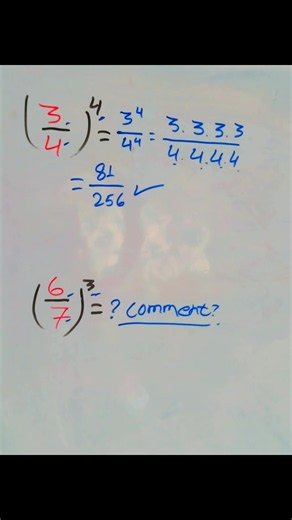 (3/4)^4 = 3^4/4^4 = 3.3.3.3/4.4.4.4
= 81/256 ✓
(6/7)^3 = ? comment?